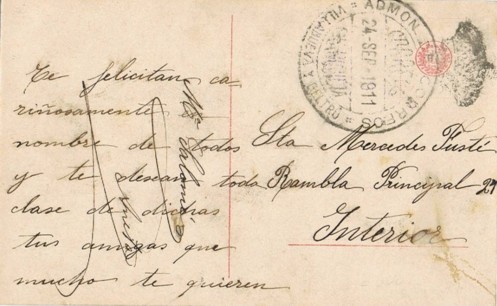 Te felicitan ca-
riñosamente
nombre de todos
y te desean toda
clase de dichas
tus amigas que
mucho te quieren
Sta Mercedes Fusté
Rambla Principal 27
Interior
ADMON CORREOS
24-SEP-1911
VILLANUEVA Y GELTRÚ